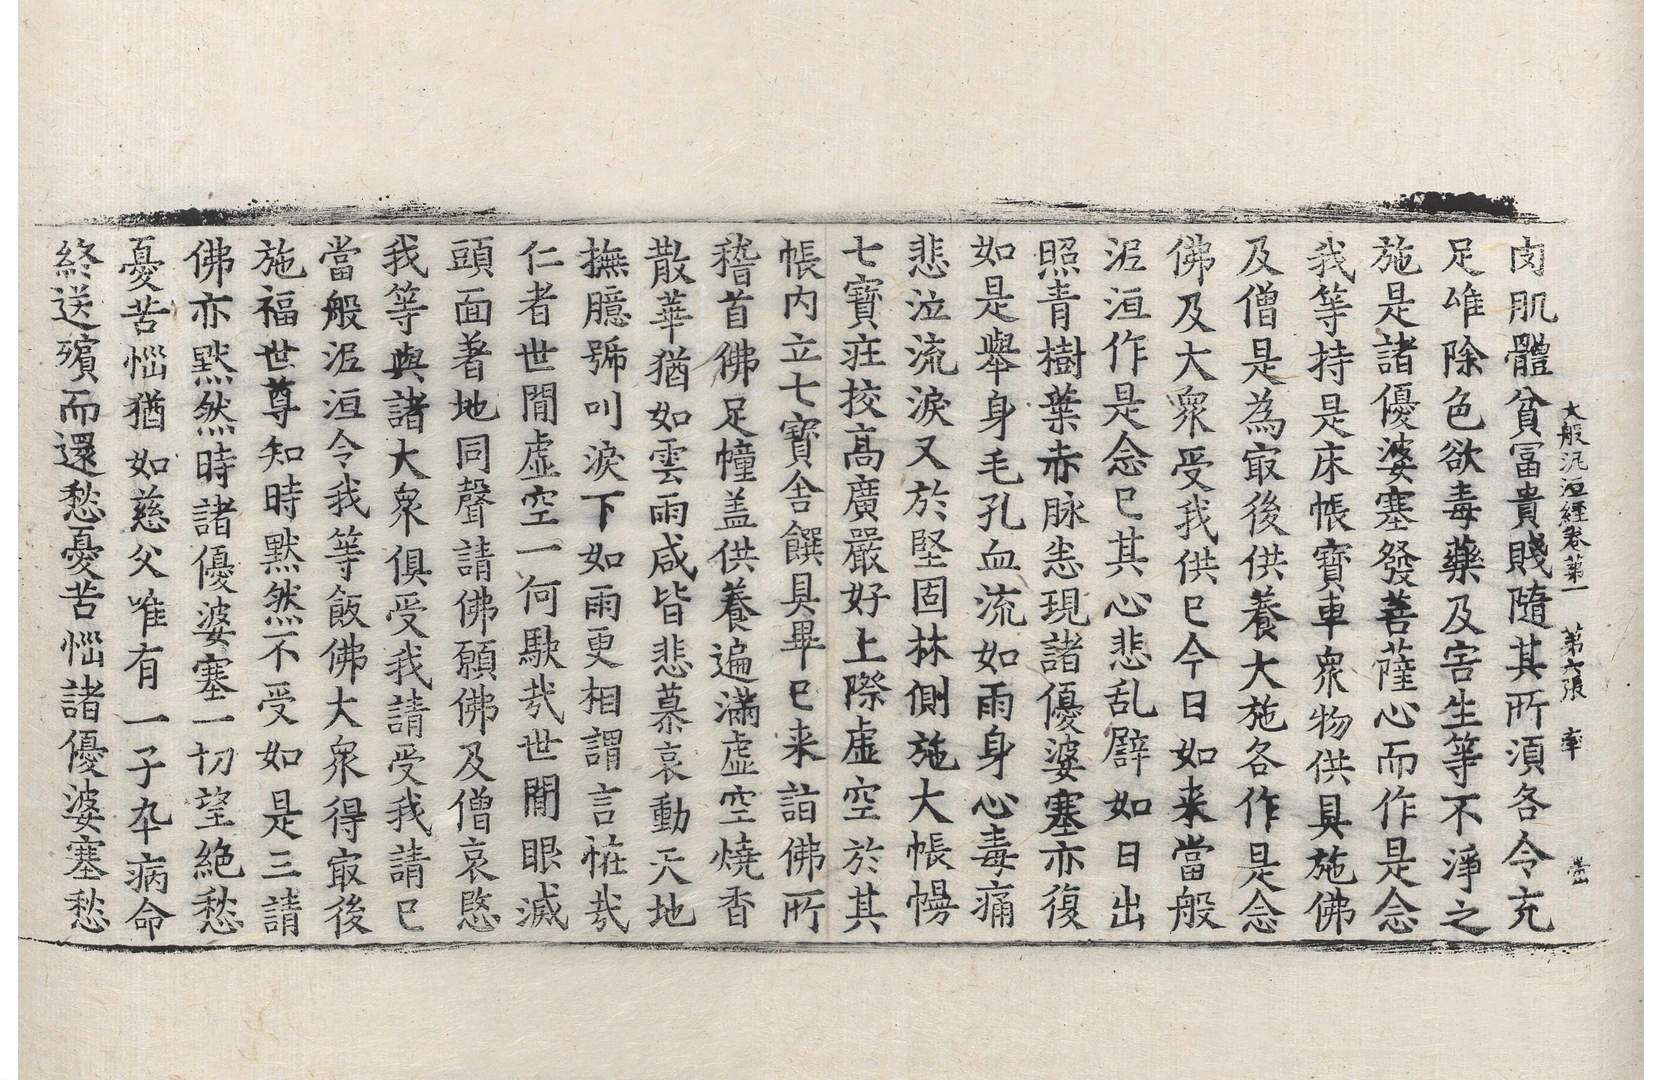 大般泥洹經卷第一 第六張 率
肉肌體貧冨貴賤隨其所須各令充
足唯除色欲毒藥及害生等不淨之
施是諸優婆塞發菩薩心而作是念
我等持是床帳寶車衆物供具施佛
及僧是為㝡後供養大施各作是念
佛及大衆受我供已今日如来當般
泥洹作是念已其心悲乱譬如日出
照青樹葉赤脉悉現諸優婆塞亦復
如是舉身毛孔血流如雨身心毒痛
悲泣流淚又於堅固林側施大帳幔
七寶莊挍高廣嚴好上際虛空於其
帳內立七寶舍饌具畢已来詣佛所
稽首佛足幢盖供養遍滿虛空燒香
散華猶如雲雨咸皆悲慕哀動天地
撫臆號叫淚下如雨更相謂言恠㢤
仁者世閒虛空一何駃㢤世閒眼滅
頭面著地同聲請佛願佛及僧哀愍
我等與諸大衆俱受我請受我請已
當般泥洹令我等飯佛大衆得㝡後
施福世尊知時默然不受如是三請
佛亦默然時諸優婆塞一切望絕愁
憂苦惱猶如慈父唯有一子卒病命
終送殯而還愁憂苦惱諸優婆塞愁